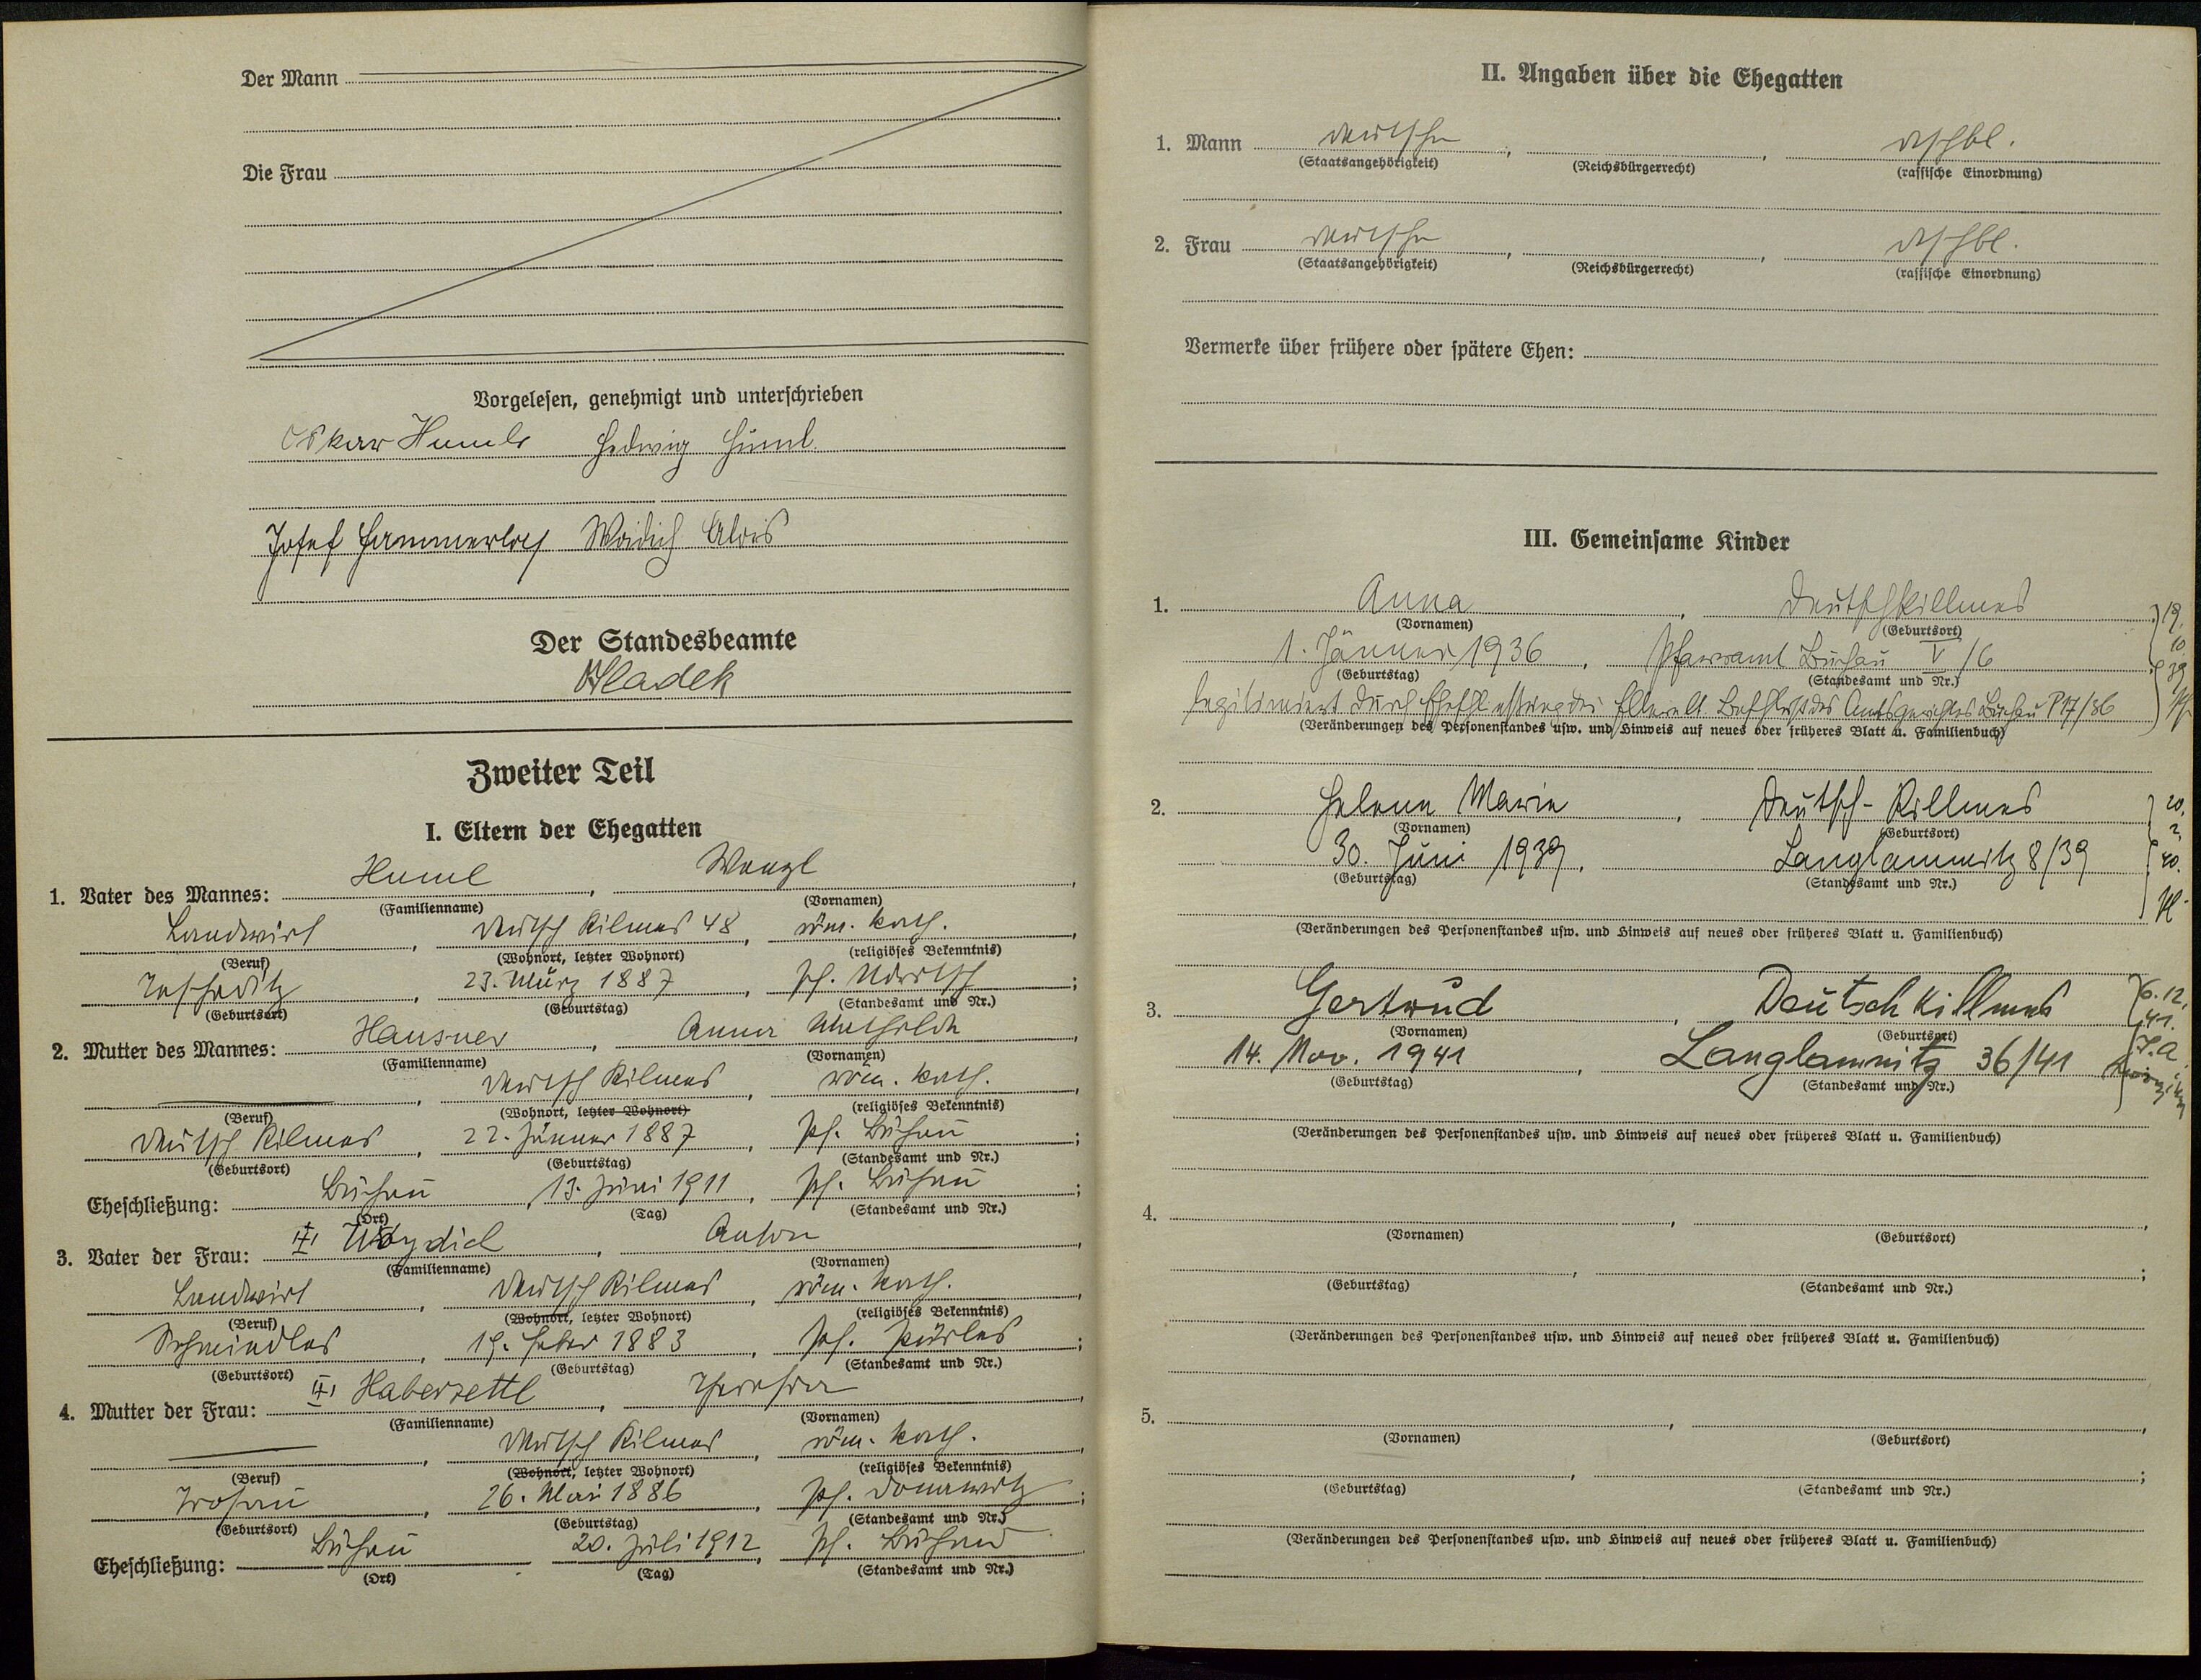 Der Mann
Die Frau
Vorgelesen, genehmigt und unterschrieben
Oskar Huml Hedwig Huml
Josef Hammerlag Alois
Der Standesbeamte
Zweiter Teil
I. Eltern der Ehegatten
1. Vater des Mannes: Huml, Wenzl,
(Familienname) (Vornamen)
Landwirt, Deutsch Kilmes 48, röm. kath.,
(Beruf) (Wohnort, letzter Wohnort) (religiöses Bekenntnis)
23. März 1887, Pf. Udritsch;
(Geburtsort) (Geburtstag) (Standesamt und Nr.)
2. Mutter des Mannes: Hausner, Anna Mathilde,
(Familienname) (Vornamen)
Deutsch Kilmes, röm. kath.,
(Beruf) (Wohnort, letzter Wohnort) (religiöses Bekenntnis)
Deutsch Kilmes, 22. Jänner 1887, Pf. Buchau;
(Geburtsort) (Geburtstag) (Standesamt und Nr.)
Eheschließung: Buchau, 13. Juni 1911, Pf. Buchau;
(Ort) (Tag) (Standesamt und Nr.)
3. Vater der Frau: Anton,
(Familienname) (Vornamen)
Landwirt, Deutsch Kilmes, röm. kath.,
(Beruf) (Wohnort, letzter Wohnort) (religiöses Bekenntnis)
Schneidles, 19. Feber 1883, Pf.
(Geburtsort) (Geburtstag) (Standesamt und Nr.)
4. Mutter der Frau: Haberzettl, Theresia,
(Familienname) (Vornamen)
Deutsch Kilmes, röm. kath.,
(Beruf) (Wohnort, letzter Wohnort) (religiöses Bekenntnis)
26. Mai 1886, Pf. Donawitz;
(Geburtsort) (Geburtstag) (Standesamt und Nr.)
Eheschließung: Buchau, 20. Juli 1912, Pf. Buchau
(Ort) (Tag) (Standesamt und Nr.)
II. Angaben über die Ehegatten
1. Mann deutsche, , dtschbl.
(Staatsangehörigkeit) (Reichsbürgerrecht) (rassische Einordnung)
2. Frau deutsche, , dtschbl.
(Staatsangehörigkeit) (Reichsbürgerrecht) (rassische Einordnung)
Vermerke über frühere oder spätere Ehen:
III. Gemeinsame Kinder
1. Anna, Deutschkillmes,
(Vornamen) (Geburtsort)
1. Jänner 1936, Pfarramt Buchau V/6
(Geburtstag) (Standesamt und Nr.)
19. 10. 39
legitimiert durch Eheschließung der Eltern lt. Beschluß des Amtsgerichtes Buchau P 17/36
(Veränderungen des Personenstandes usw. und Hinweis auf neues oder früheres Blatt u. Familienbuch)
2. Helene Marie, Deutsch-Killmes
(Vornamen) (Geburtsort)
30. Juni 1939, Langlammitz 8/39
(Geburtstag) (Standesamt und Nr.)
20. 2. 40.
(Veränderungen des Personenstandes usw. und Hinweis auf neues oder früheres Blatt u. Familienbuch)
3. Gertrud, Deutsch Killmes
(Vornamen) (Geburtsort)
14. Nov. 1941, Langlammitz 36/41
(Geburtstag) (Standesamt und Nr.)
6. 12. 41.
(Veränderungen des Personenstandes usw. und Hinweis auf neues oder früheres Blatt u. Familienbuch)
4. , ,
(Vornamen) (Geburtsort)
, ;
(Geburtstag) (Standesamt und Nr.)
(Veränderungen des Personenstandes usw. und Hinweis auf neues oder früheres Blatt u. Familienbuch)
5. , ,
(Vornamen) (Geburtsort)
, ;
(Geburtstag) (Standesamt und Nr.)
(Veränderungen des Personenstandes usw. und Hinweis auf neues oder früheres Blatt u. Familienbuch)